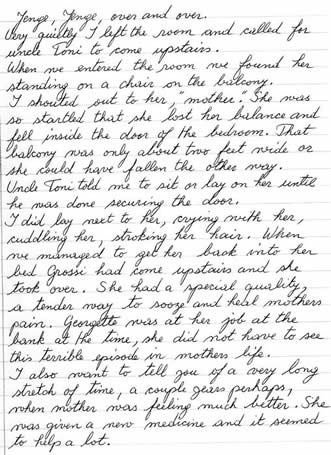 Jenge, Jenge, over and over.
Very quietly I left the room and called for
uncle Toni to come upstairs.
When we entered the room we found her
standing on a chair on the balcony.
I shouted out to her, "mother". She was
so startled that she lost her balance and
fell inside the door of the bedroom. That
balcony was only about two feet wide or
she could have fallen the other way.
Uncle Toni told me to sit or lay on her until
he was done securing the door.
I did lay next to her, crying with her,
cuddling her, stroking her hair. When
we managed to get her back into her
bed Grossi had come upstairs and she
took over. She had a special quality,
a tender way to sooze and heal mothers
pain. Georgette was at her job at the
bank at the time, she did not have to see
this terrible episode in mothers life.
I also want to tell you of a very long
stretch of time, a couple years perhaps,
when mother was feeling much better. She
was given a new medicine and it seemed
to help a lot.